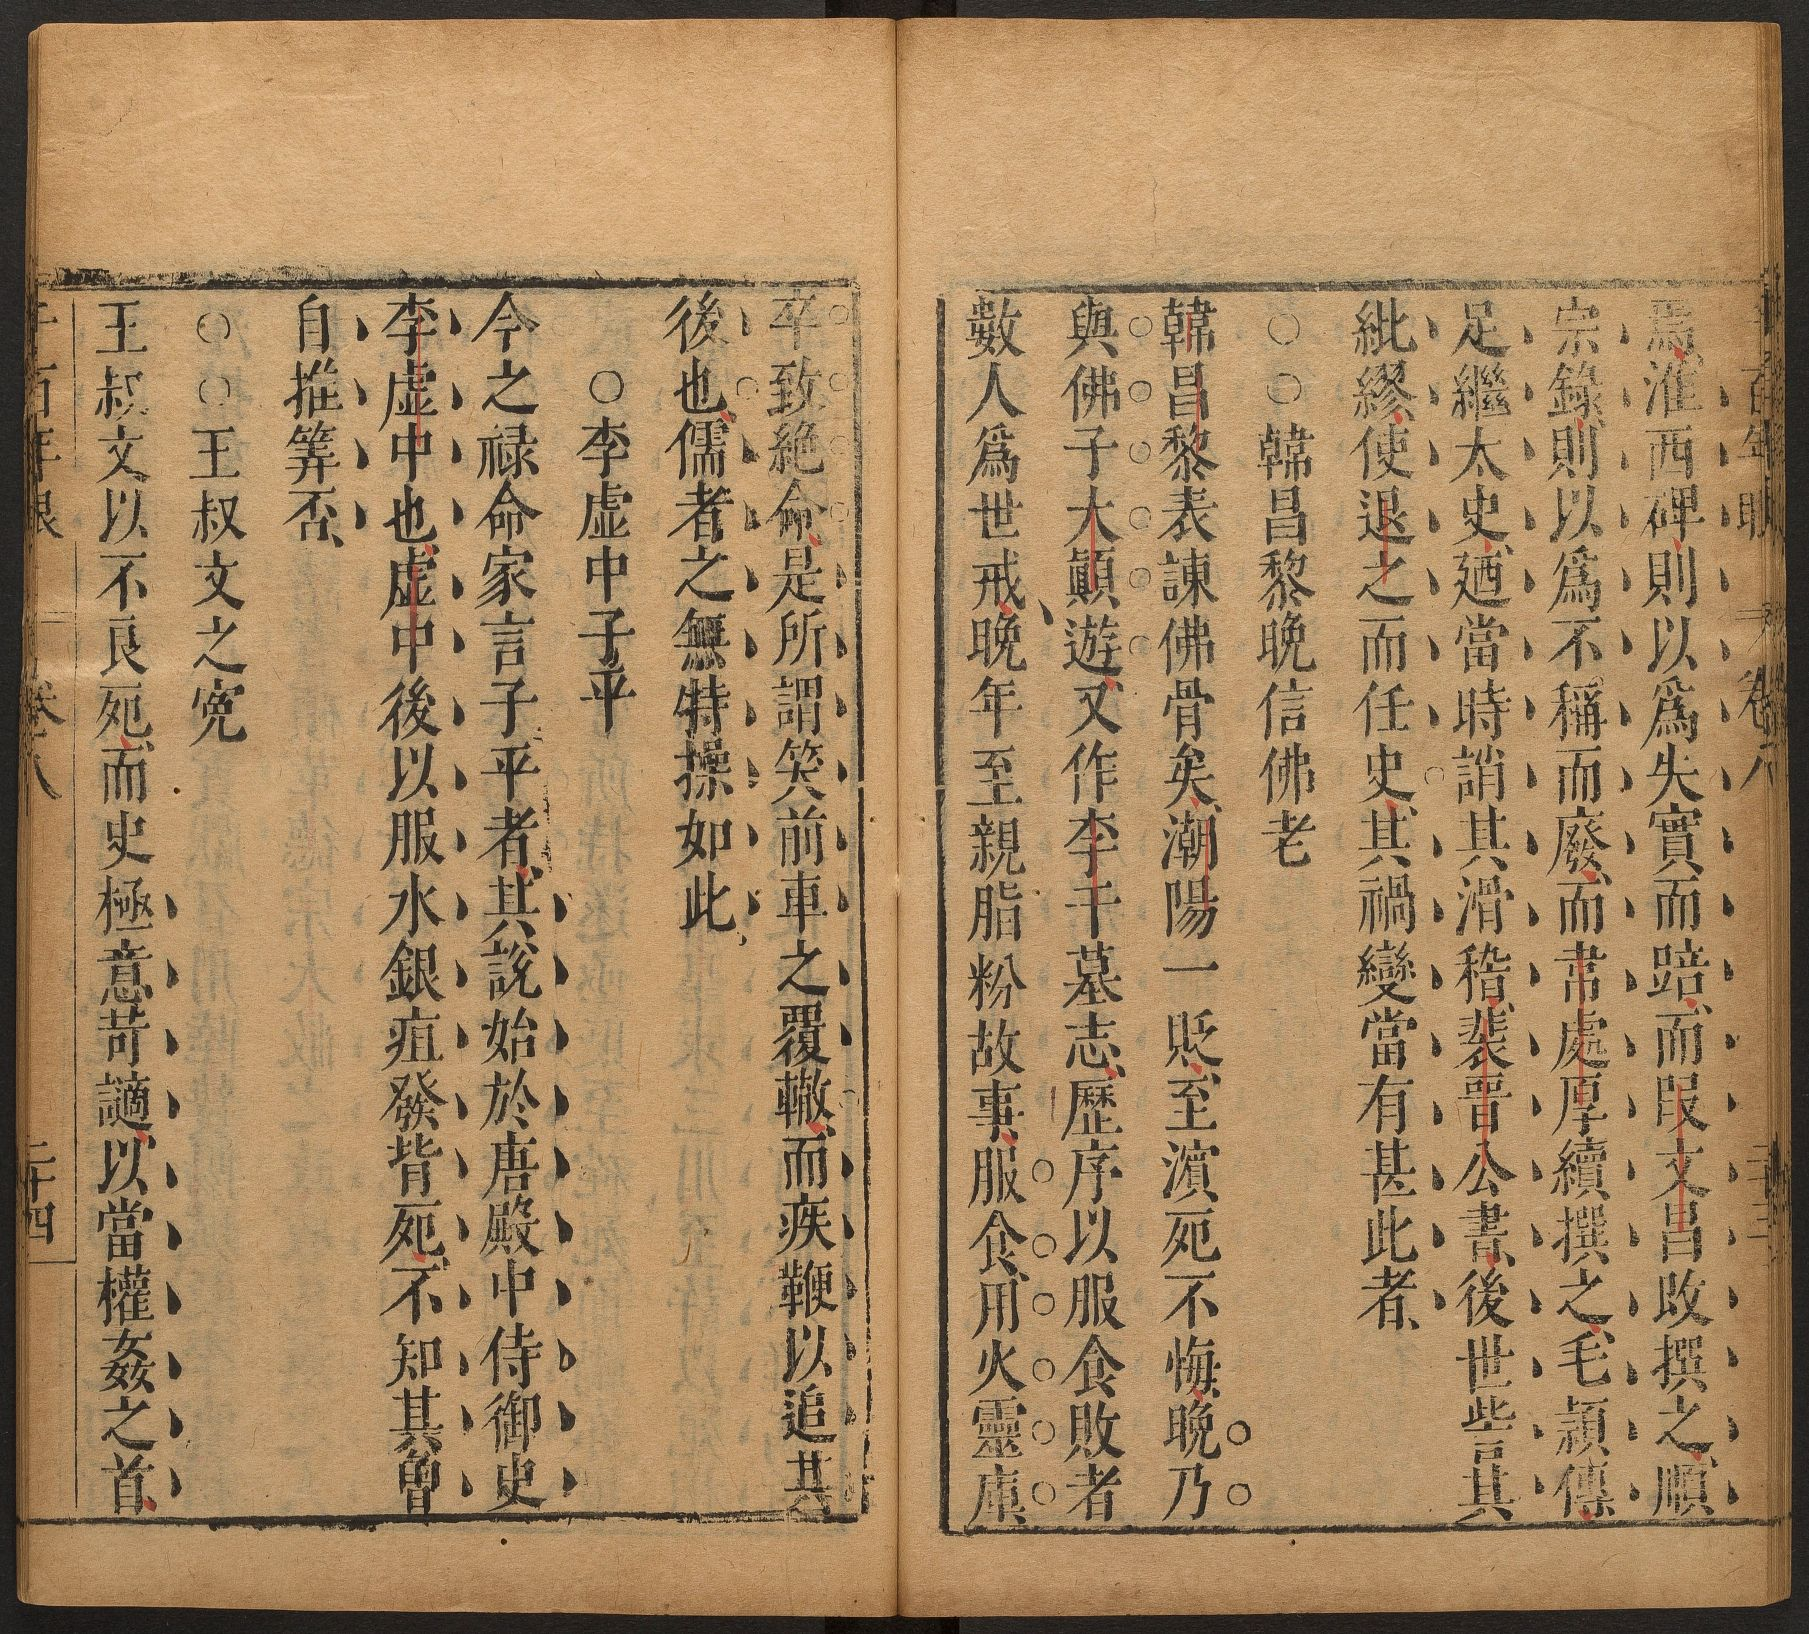 爲淮西碑則以爲失實而踣而叚文昌改撰之順
宗錄則以爲不稱而廢而韋處厚續撰之毛頴傳
足繼太史廼當時誚其滑稽裴晋公書後世訾其
紕繆使退之而任史其禍變當有甚此者
○○韓昌黎晚信佛老
韓昌黎表諫佛骨矣潮陽一貶至濵死不悔晚乃
與佛子大顚遊又作李干墓志歷序以服食敗者
數人爲世戒晚年至親脂粉故事服食用火靈庫
卒致絶命是所謂笑前車之覆轍而疾鞭以追其
後也儒者之無特操如此
○李虚中子平
今之禄命家言子平者其說始於唐殿中侍御史
李虚中也虚中後以服水銀疽發背死不知其曾
自推筭否
○○王叔文之寃
王叔文以不良死而史極意苛謫以當權姦之首
千百年眼 卷八 二十四